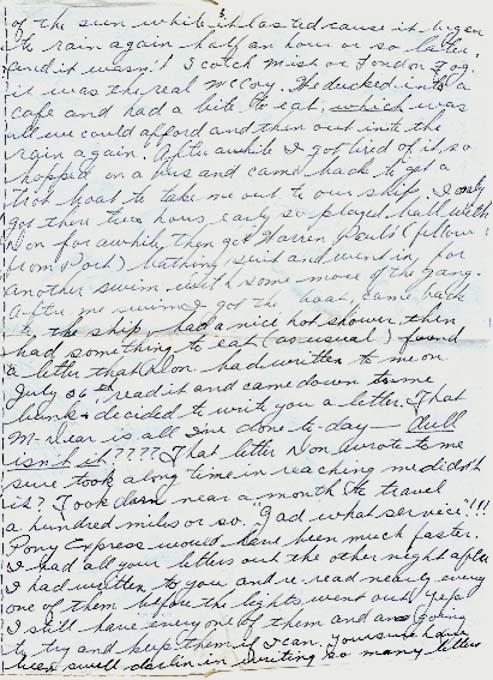 of the sun while it lasted cause it began
to rain again half an hour or so later,
and it wasn't Scotch mist or London Fog,
it was the real McCoy. We ducked into a
cafe and had a bite to eat, which was
all we could afford and then out into the
rain again. After awhile I got tired of it so
hopped on a bus and came back to get a
boat to take me out to our ship. I only
got there two hours early so played ball with
Non for awhile, then got Warren Pauls (fellow
from Port) bathing suit and went in for
another swim with some more of the gang.
After me swim I got the boat, came back
to the ship, had a nice hot shower, then
had something to eat (as usual) found
a letter that Non had written to me on
July 06th, read it and came down to me
bunk & decided to write you a letter. That
M-Dear is all I've done to-day — Dull
isn't it???? That letter Non wrote to me
sure took a long time in reaching me didn't
it? Took darn near a month to travel
a hundred miles or so. "Gad what service"!!!
Pony Express would have been much faster.
I had all your letters out the other night after
I had written to you and re-read nearly every
one of them before the lights went out. Yep
I still have every one of them and am going
to try and keep them if I can. You sure have
been swell darlin in writing so many letters